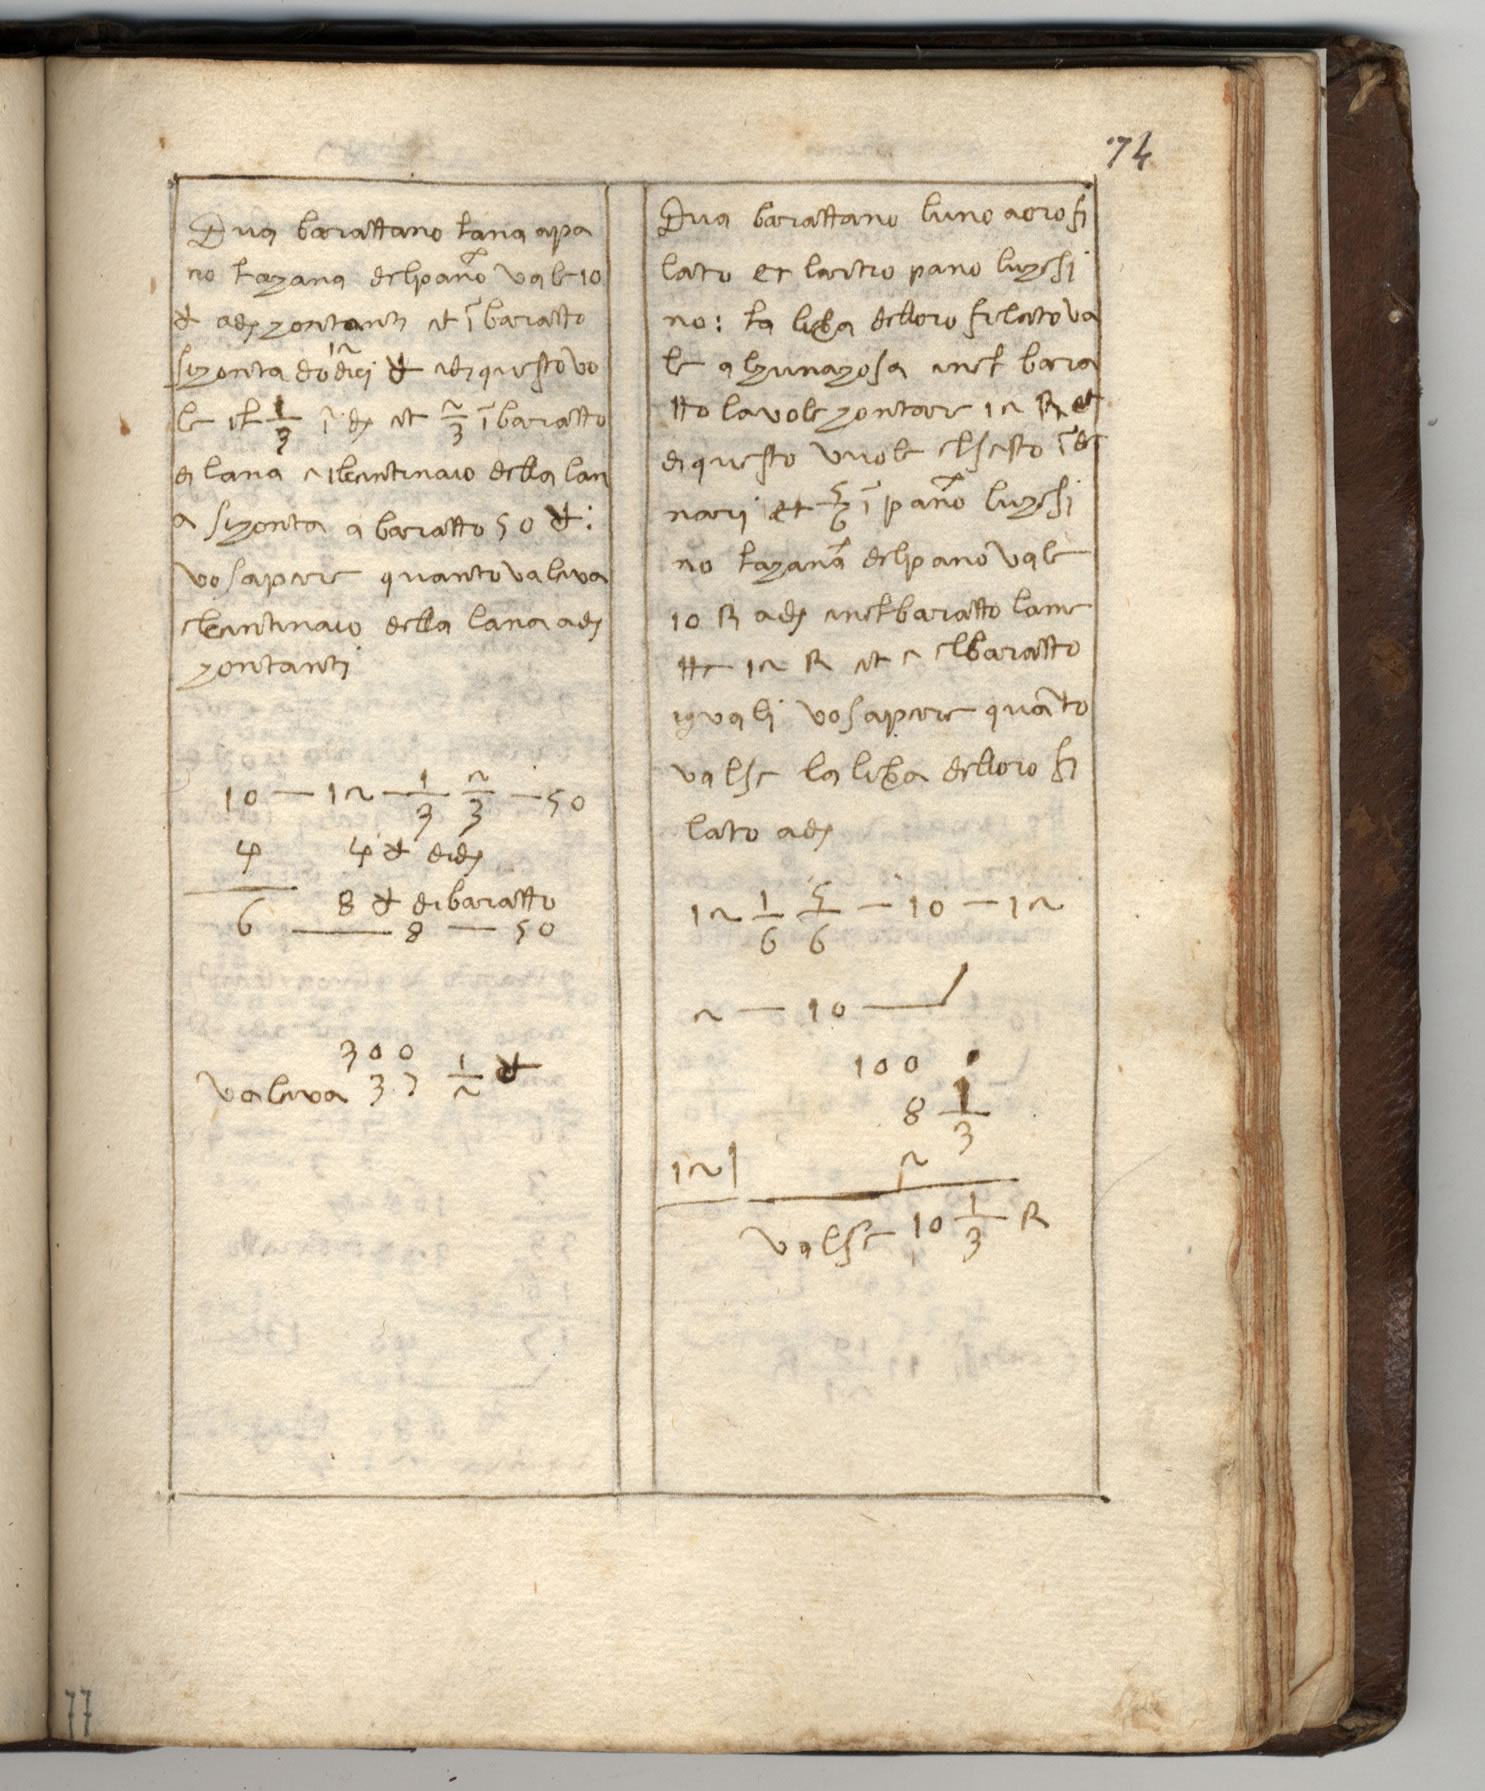 74
Dua barattano lana apa
no lacana del pano vale 10
∂ a d contanti et ĩ baratto
si conta dodici ∂ et di questo vo
le il 1/3 ĩ d et 2/3 ĩ baratto
di lana e il centinaio della lan
a si conta a baratto 50 ∂:
vo sapere quanto valeva
el centinaio della lana a d
contanti
10 — 12 — 1/3 2/3 — 50
4 4 ∂ di d
6 8 ∂ di baratto
8 — 50
300
valeva 37 1/2 ∂
Dua barattano luno a oro fi
lato et laltro pano luchesi
no: la libra delloro filato va
le alcuna cosa et nel bara
tto la vole contare 12 R et
di questo vuole el sesto ĩ de
nari et 5/6 ĩ pano luchesi
no la cana del pano vale
10 R a d et nel baratto la me
tte 12 R et e el baratto
iguali vo sapere quãto
valse la libra delloro fi
lato a d
12 1/6 5/6 — 10 — 12
2 — 10 —
100
8 1/3
12 2
valse 10 1/3 R
77